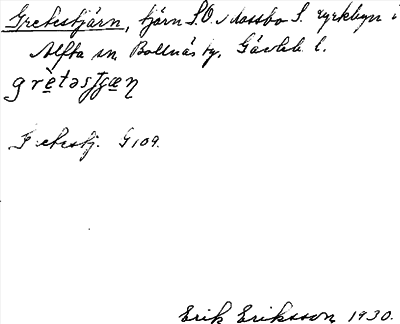 Gretestjärn, tjärn S.O. Mossbo S. kyrkbyn i
Alfta sn. Bollnäs tg. Gävleb. l.
grètəstjæn
etestj. G 109.
Erik Eriksson, 1930.